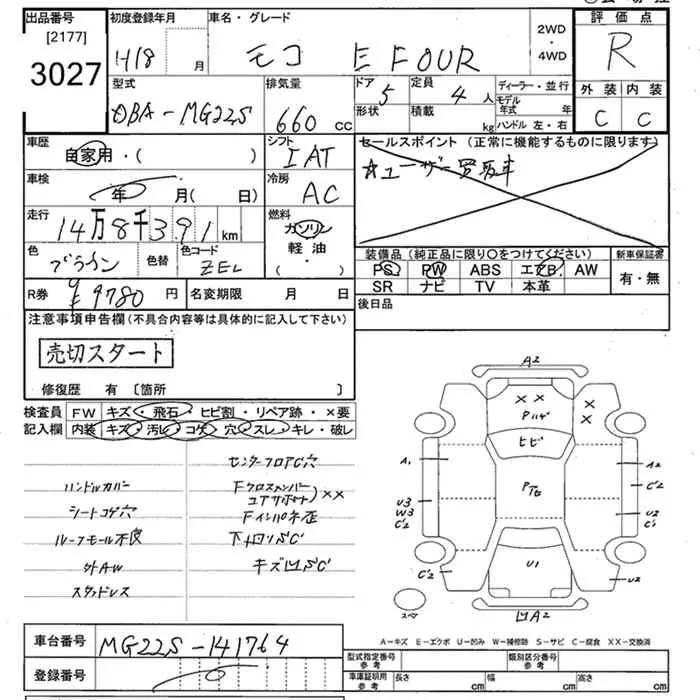 出品番号
[2177]
3027
初度登録年月
H18 月
車名・グレード
モコ E FOUR
2WD
・
4WD
評価点
R
外装 内装
C C
型式
DBA-MG22S
排気量
660 cc
ドア
5
定員
4 人
形状
積載
kg
ディーラー・並行
モデル
年式 年
ハンドル 左・右
車歴
自家用・( )
シフト
IAT
車検
年 月( 日)
冷房
AC
走行
14万8千391km
燃料
ガソリン
軽・油
・
( )
色
ブラウン
色替
色コード
ZEL
R券
¥9780 円
名変期限 月 日
セールスポイント (正常に機能するものに限ります)
☆ユーザー買取車
装備品 (純正品に限り○をつけてください)
PS PW ABS エアB AW
SR ナビ TV 本革
新車保証書
有・無
後日品
注意事項申告欄(不具合内容等は具体的に記入して下さい)
売切スタート
修復歴 有 〔箇所 〕
検査員
記入欄
FW キズ・飛石・ヒビ割・リペア跡・×要
内装 キズ・汚レ・コゲ・穴・スレ・キレ・破レ
ハンドルカバー
シートコゲ穴
ルーフモール不良
外AW
スタッドレス
センターフロアC穴
Fクロスメンバー
コアサポート) ××
Fインパネ歪
下廻りSC
キズ凹SC
A2
××
Pハゲ
×
×
ヒビ
A1
A2
C2
P石
U3
W3
C2
U2
C1
U1
C2
U2
スペ
凹A2
A-キズ E-エクボ U-凹み W-補修跡 S-サビ C-腐食 XX-交換済
車台番号
MG22S-141764
登録番号
型式指定番号
参考
類別区分番号
参考
車庫証明用
参考
長さ cm
幅 cm
高さ cm